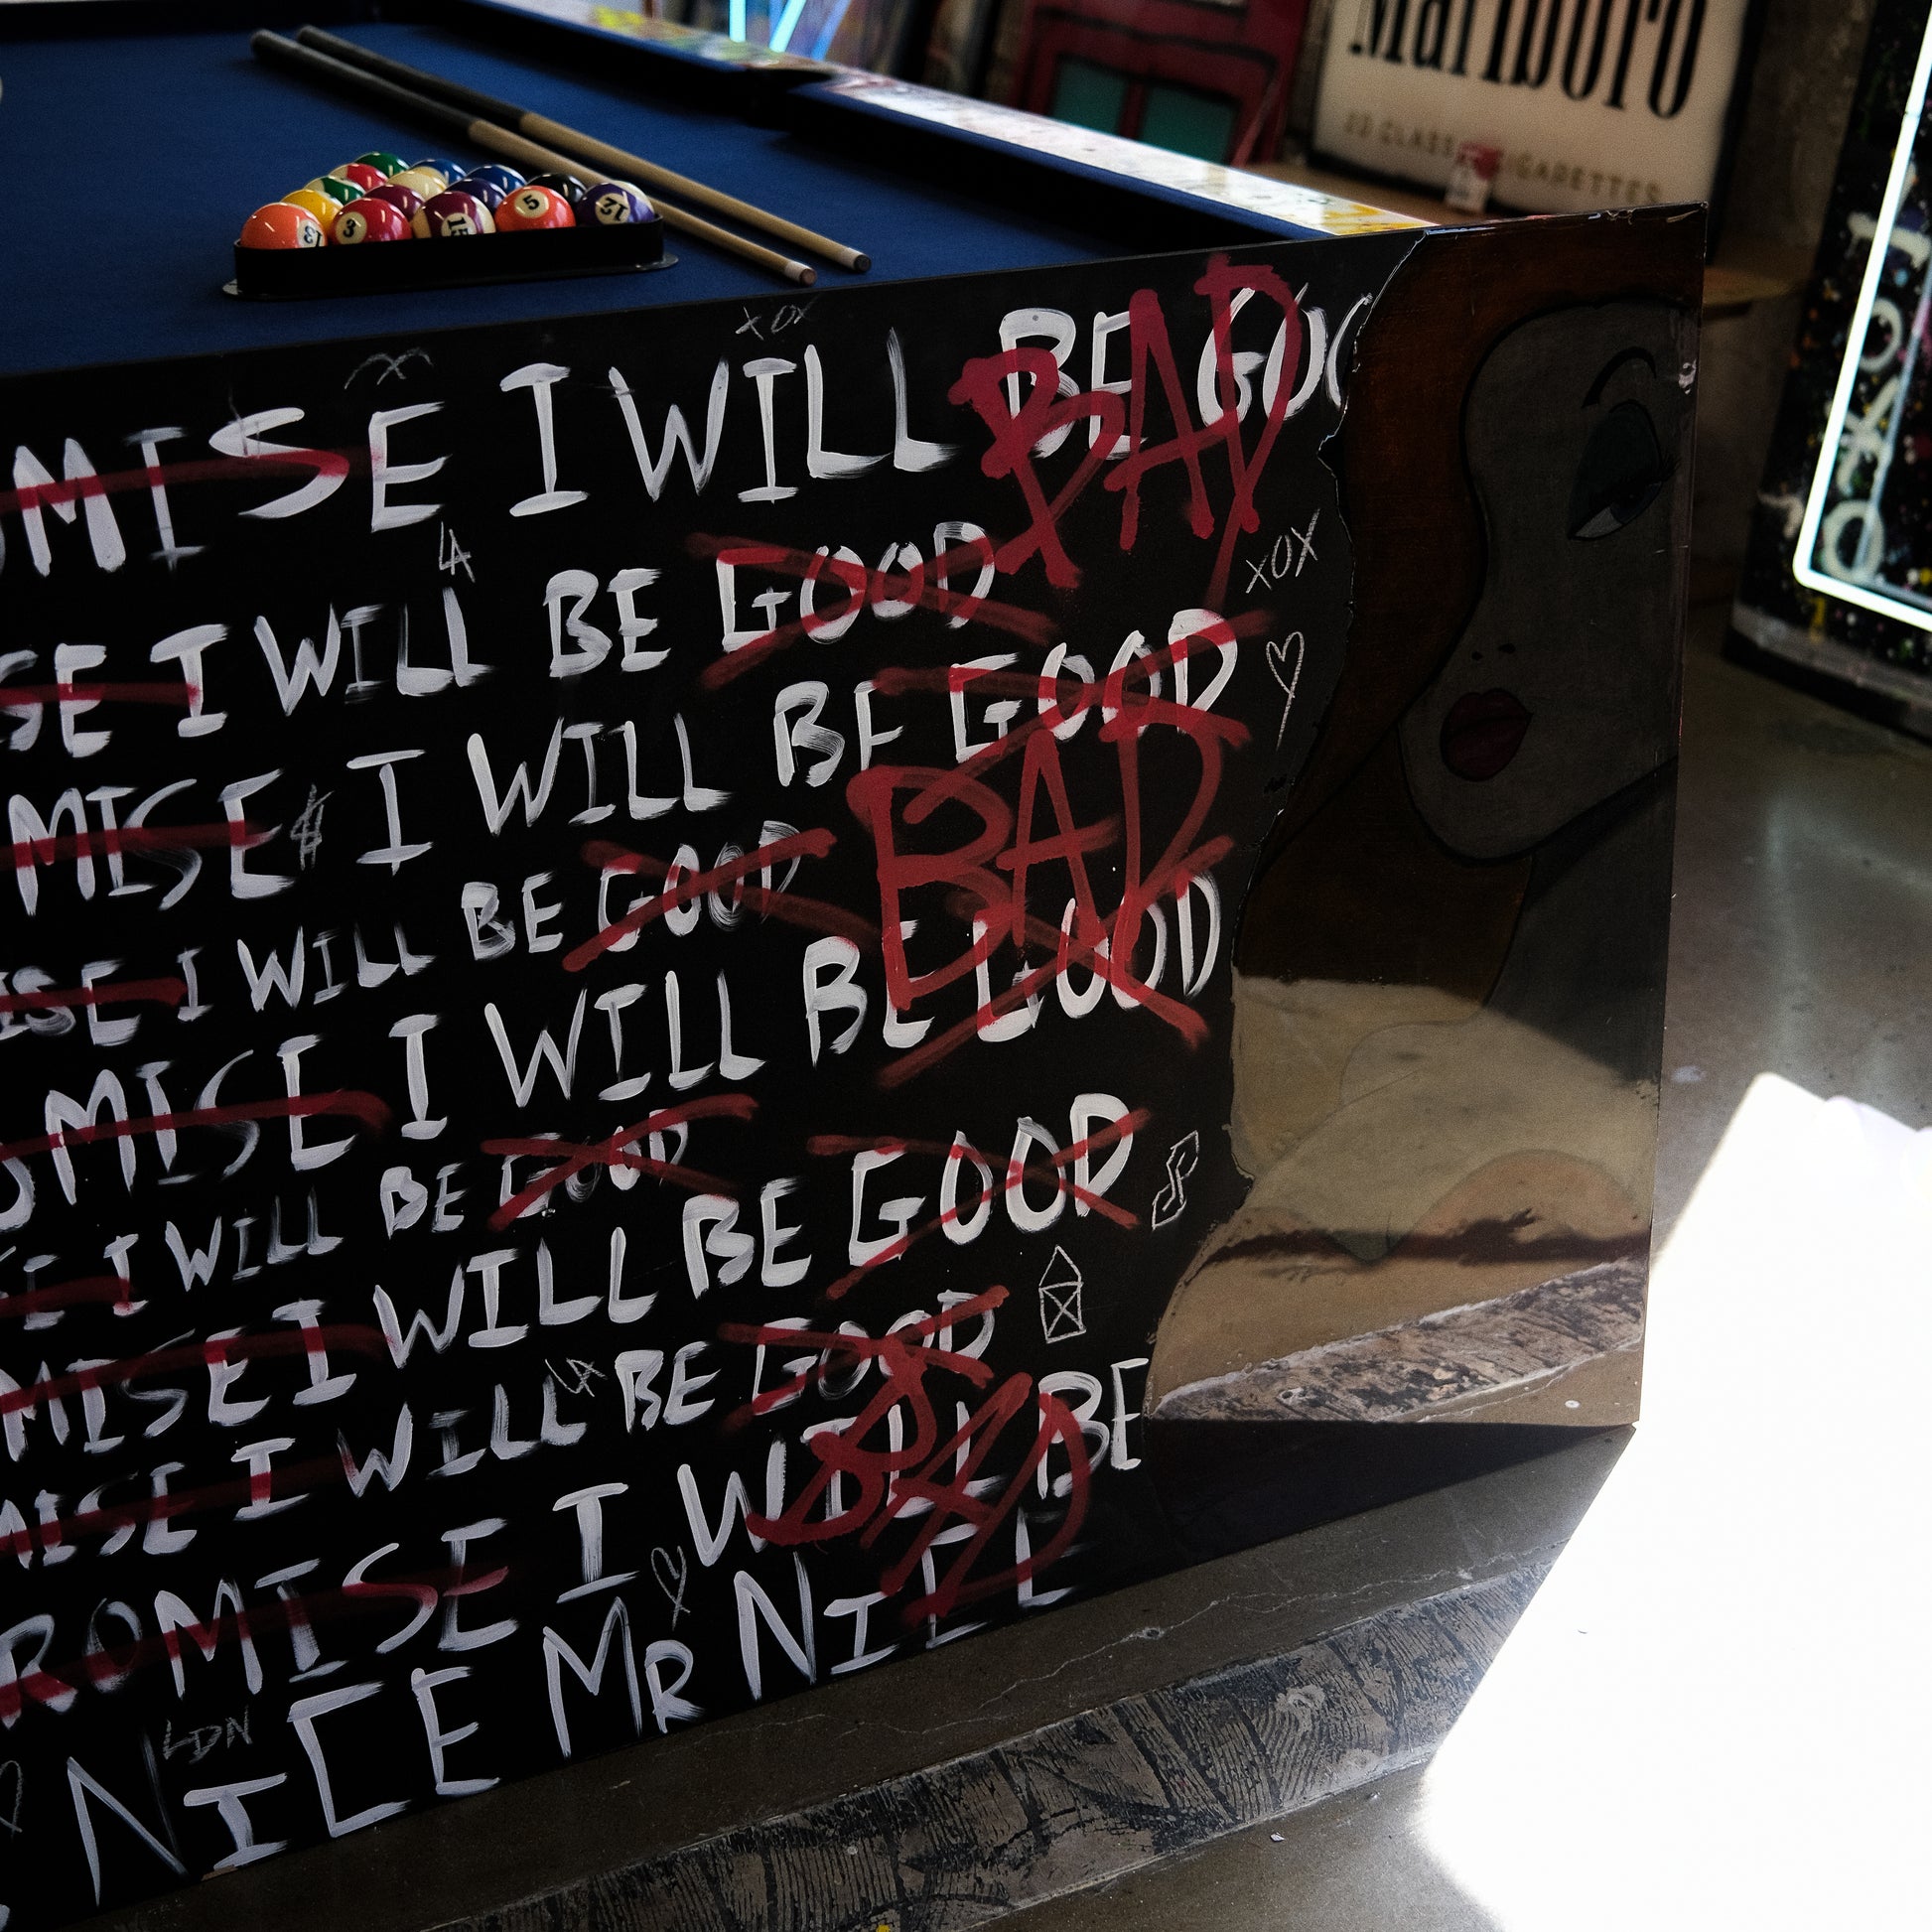 Marlboro
20 CLASS A CIGARETTES
13 3 15 5 12
XOX
MISE I WILL BE GOO
BAD
LA
SE I WILL BE GOOD
XOX
MISE $ I WILL BE GOOD
BAD
ISE I WILL BE GOOD
OMISE I WILL BE GOOD
SE I WILL BE GOOD
MISE I WILL BE GOOD
LA
MISE I WILL BE GOOD
BAD
ROMISE I WILL BE
LDN
NICE MR NICE